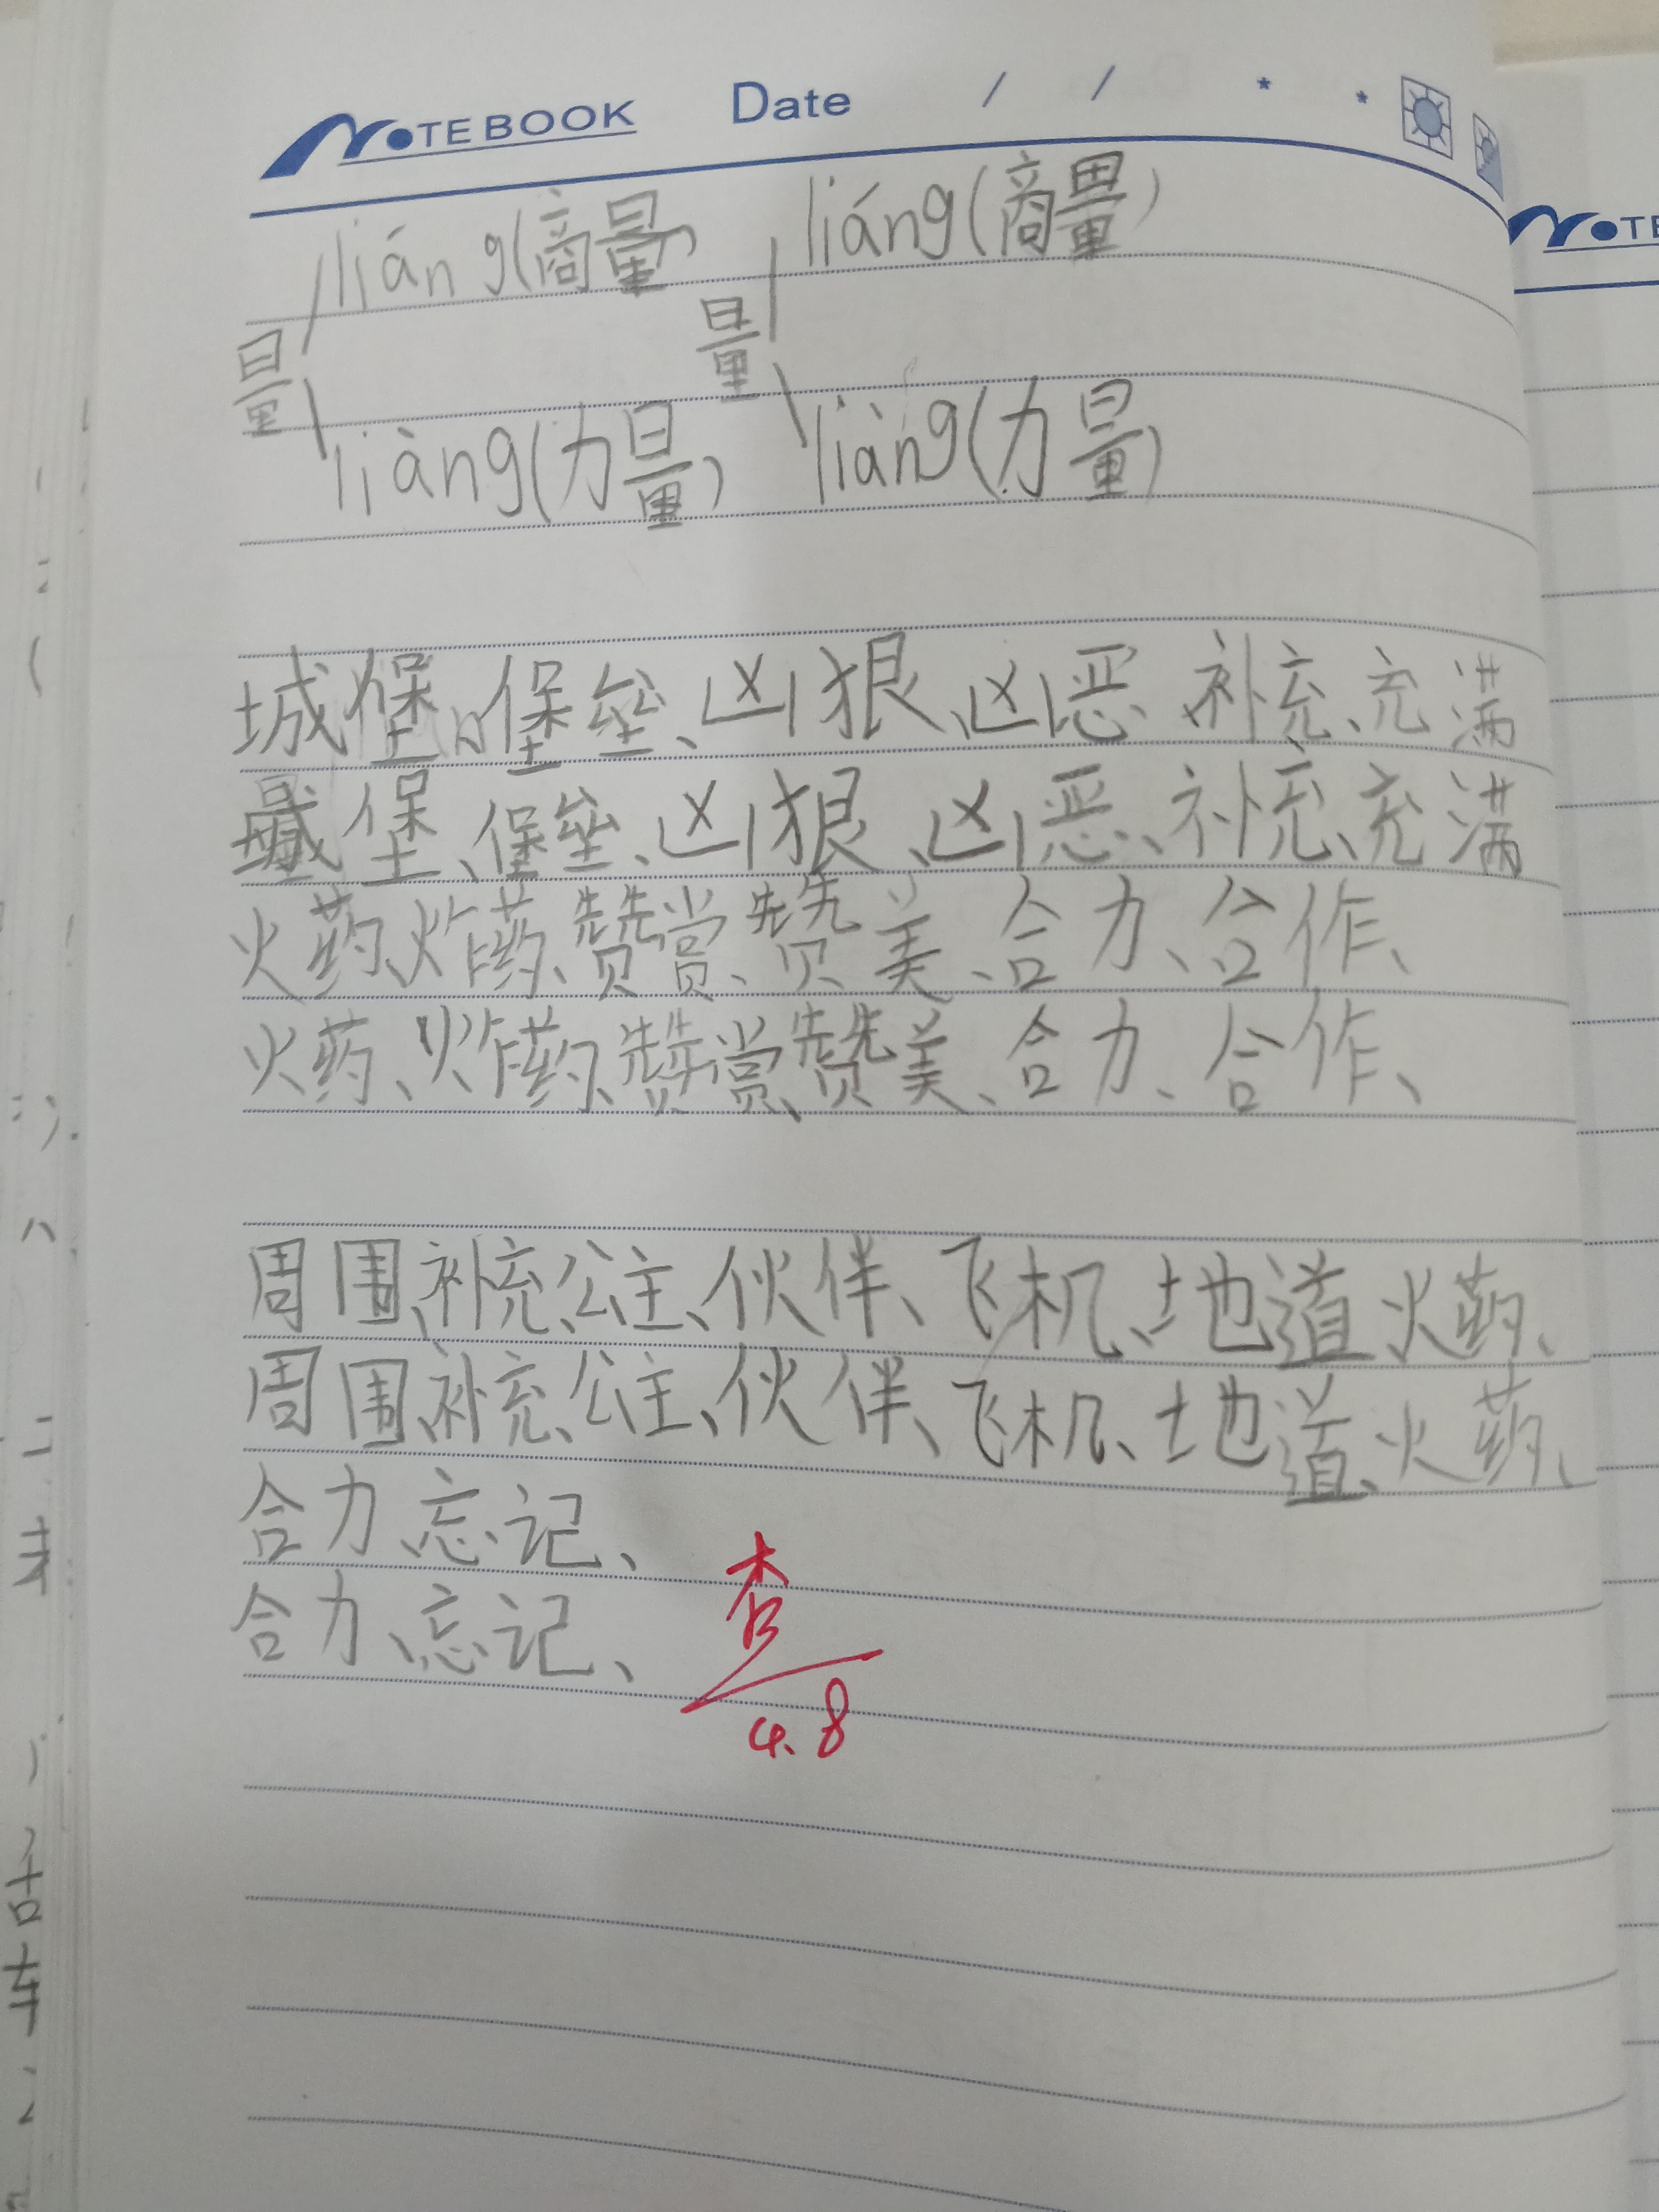 NOTEBOOK Date / /
liáng(商量) liáng(商量)
量 量
liàng(力量) liàng(力量)
城堡、堡垒、凶狠、凶恶、补充、充满
城堡、堡垒、凶狠、凶恶、补充、充满
火药、炸药、赞赏、赞美、合力、合作、
火药、炸药、赞赏、赞美、合力、合作、
周围、补充、公主、伙伴、飞机、地道、火药、
周围、补充、公主、伙伴、飞机、地道、火药、
合力、忘记、
合力、忘记、
查
4.8
NOTE